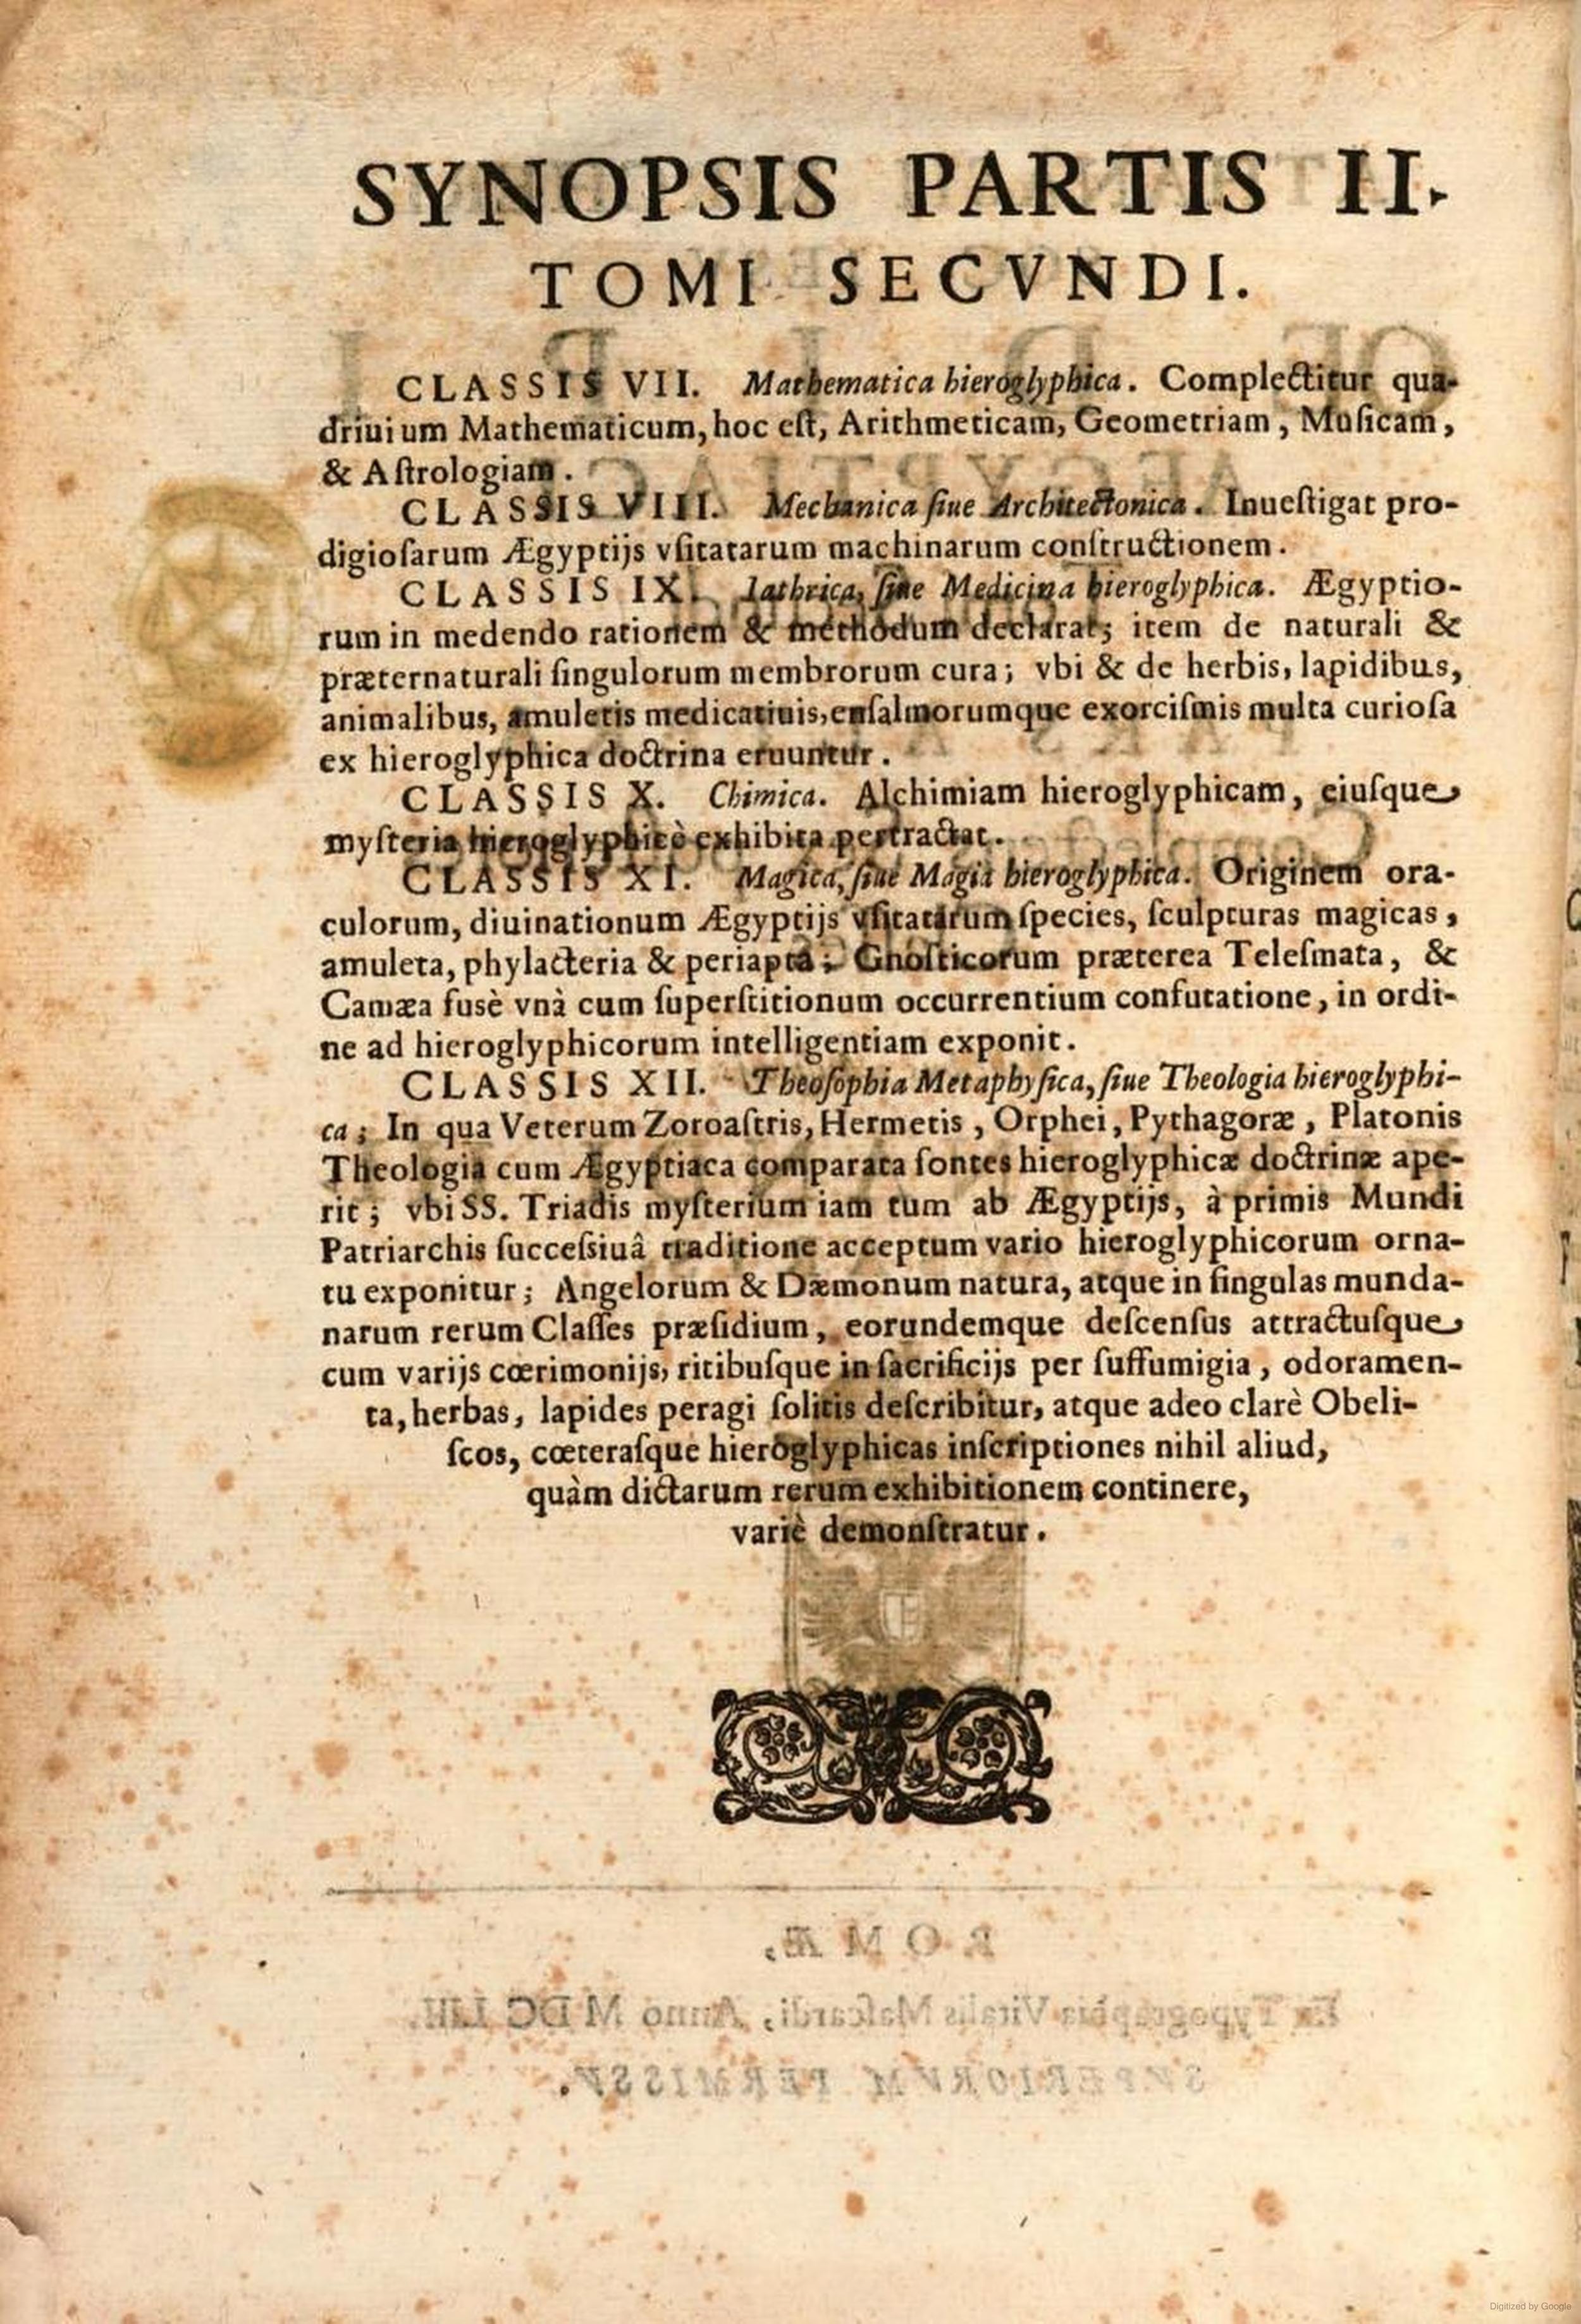 SYNOPSIS PARTIS II.
TOMI SECVNDI.
CLASSIS VII. Mathematica hieroglyphica. Complectitur qua-
driuium Mathematicum, hoc eſt, Arithmeticam, Geometriam, Muſicam,
& Aſtrologiam.
CLASSIS VIII. Mechanica ſiue Architectonica. Inueſtigat pro-
digioſarum Ægyptijs vſitatarum machinarum conſtructionem.
CLASSIS IX. Iathrica, ſiue Medicina hieroglyphica. Ægyptio-
rum in medendo rationem & methodum declarat; item de naturali &
præternaturali ſingulorum membrorum cura; vbi & de herbis, lapidibus,
animalibus, amuletis medicatiuis, enſalmorumque exorciſmis multa curioſa
ex hieroglyphica doctrina eruuntur.
CLASSIS X. Chimica. Alchimiam hieroglyphicam, eiuſque
myſteria hieroglyphicè exhibita pertractat.
CLASSIS XI. Magica, ſiue Magia hieroglyphica. Originem ora-
culorum, diuinationum Ægyptijs vſitatarum ſpecies, ſculpturas magicas,
amuleta, phylacteria & periapta; Gnoſticorum præterea Teleſmata, &
Camæa fusè vnà cum ſuperſtitionum occurrentium confutatione, in ordi-
ne ad hieroglyphicorum intelligentiam exponit.
CLASSIS XII. Theoſophia Metaphyſica, ſiue Theologia hieroglyphi-
ca; In qua Veterum Zoroaſtris, Hermetis, Orphei, Pythagoræ, Platonis
Theologia cum Ægyptiaca comparata fontes hieroglyphicæ doctrinæ ape-
rit; vbi SS. Triadis myſterium iam tum ab Ægyptijs, à primis Mundi
Patriarchis ſucceſsiuâ traditione acceptum vario hieroglyphicorum orna-
tu exponitur; Angelorum & Dæmonum natura, atque in ſingulas munda-
narum rerum Claſſes præſidium, eorundemque deſcenſus attractuſque
cum varijs cœrimonijs, ritibuſque in ſacrificijs per ſuffumigia, odoramen-
ta, herbas, lapides peragi ſolitis deſcribitur, atque adeo clarè Obeli-
ſcos, cœteraſque hieroglyphicas inſcriptiones nihil aliud,
quàm dictarum rerum exhibitionem continere,
variè demonſtratur.
Digitized by Google